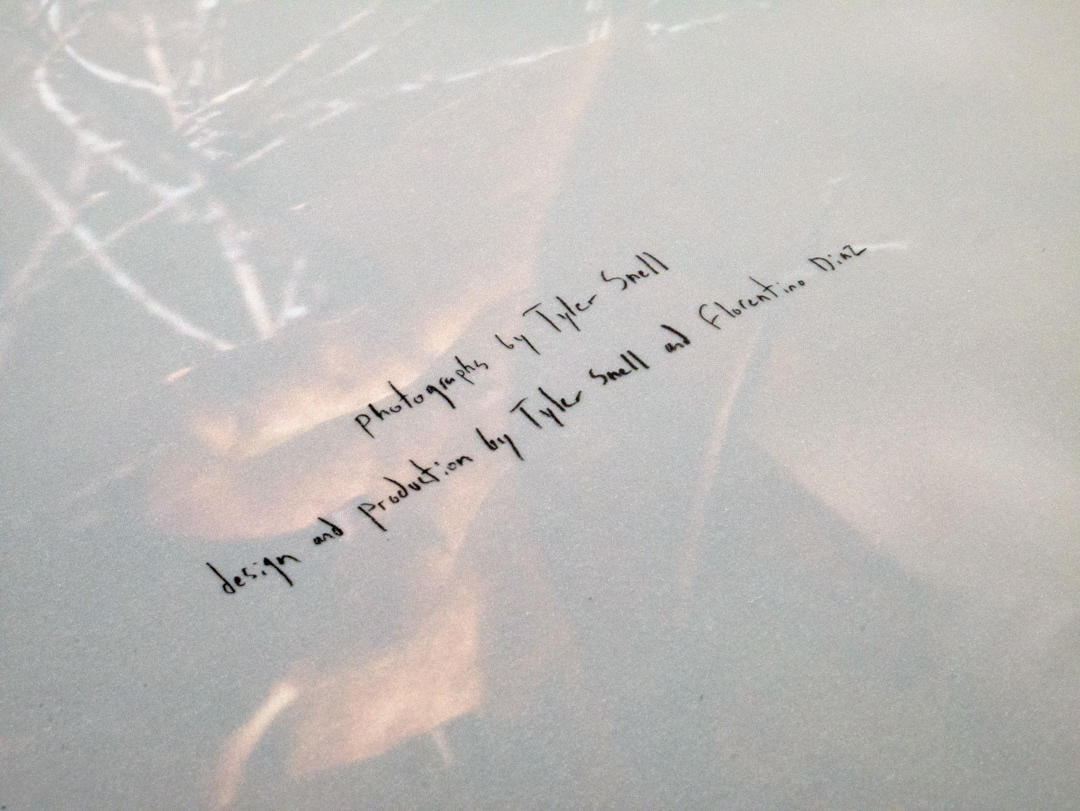 photographs by Tyler Snell
design and production by Tyler Snell and Florentino Diaz